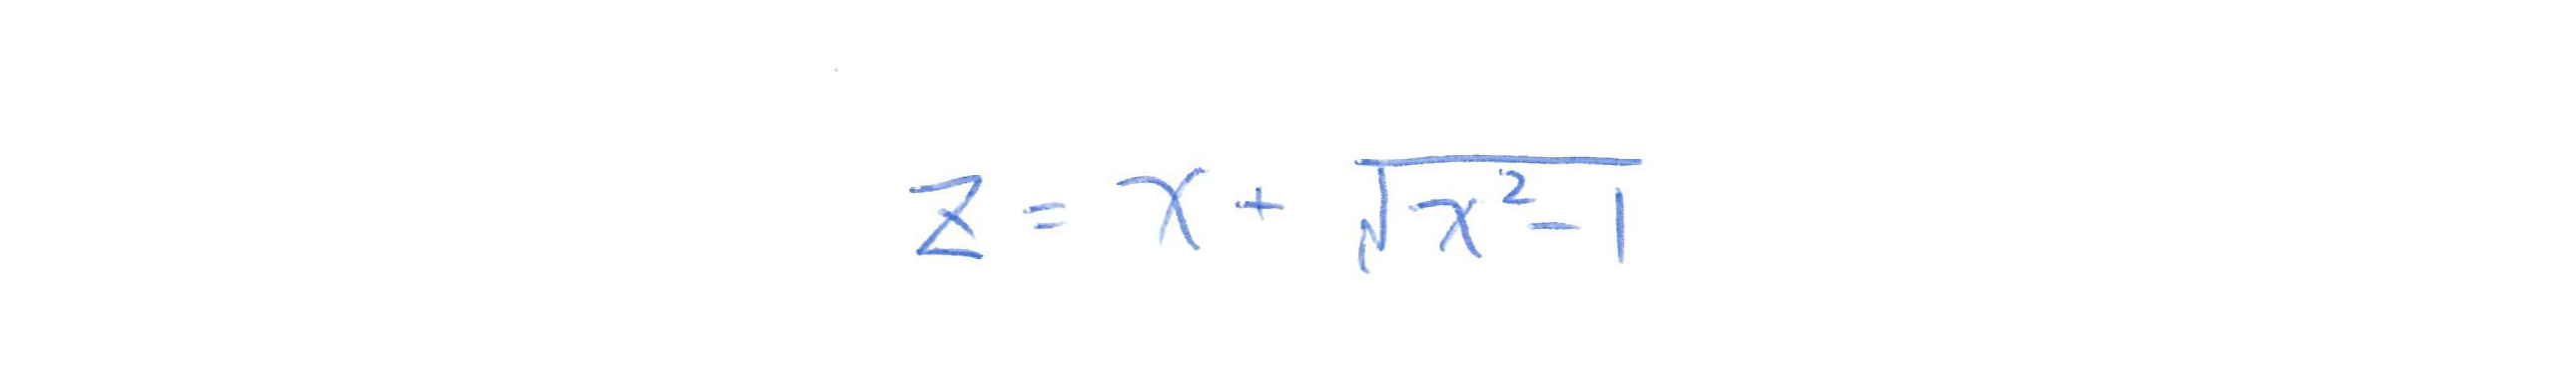 z = x + √(x² - 1)